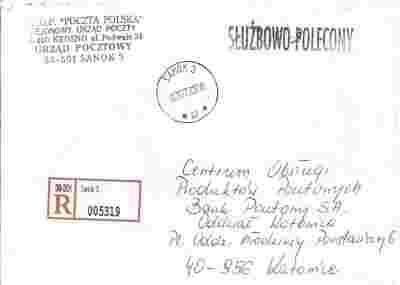 P.P.U.P. "POCZTA POLSKA"
REJONOWY URZĄD POCZTY
KROSNO ul. Podwale 38
URZĄD POCZTOWY
38-501 SANOK 3
SŁUŻBOWO-POLECONY
SANOK 3
38-501 Sanok 3
R 005319
Centrum Obsługi
Produktów Pocztowych
Bank Pocztowy S.A.
Oddział Katowice
Pl. Oddz. Młodzieży Powstańczej 6
40-956 Katowice